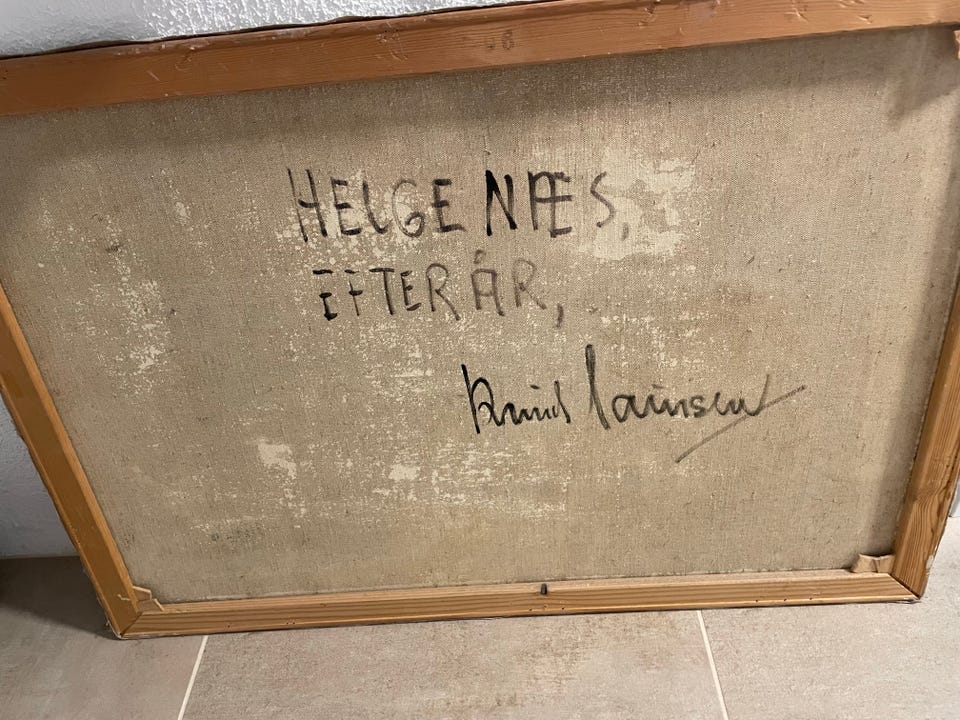 HELGENÆS,
EFTERÅR,
Knud Laursen